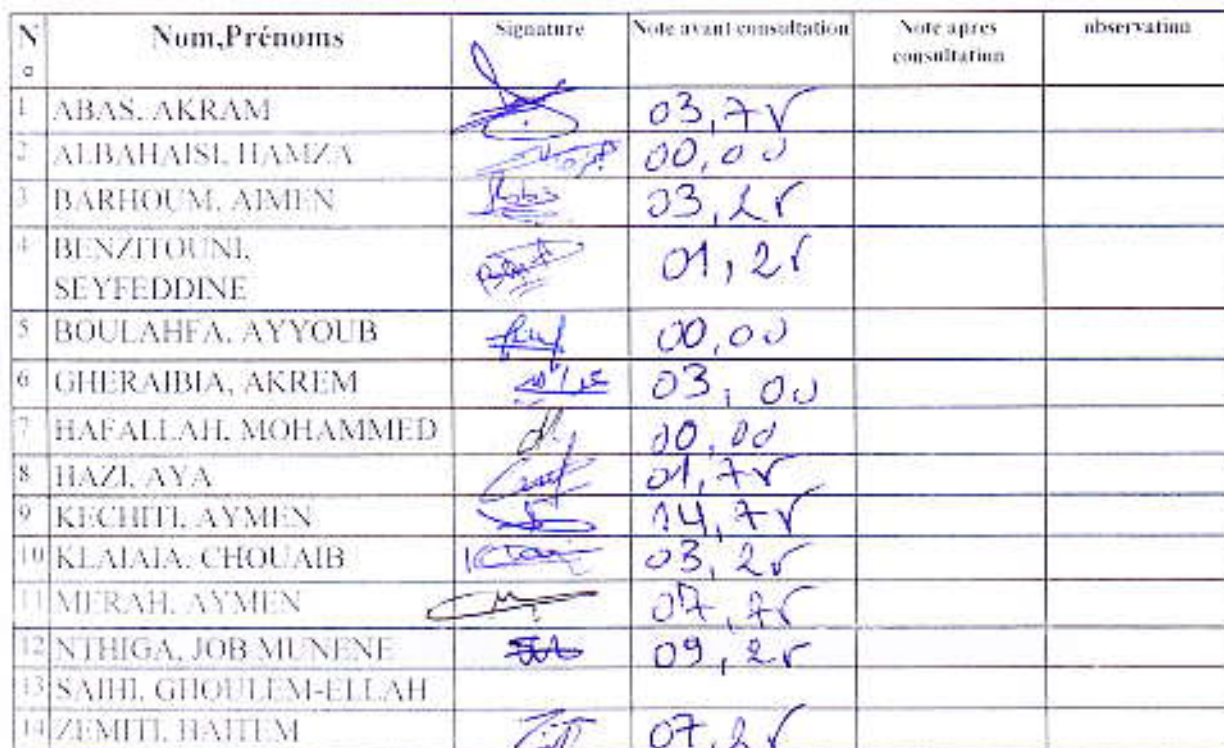 N° Nom,Prénoms Signature Note avant consultation Note apres consultation observation
1 ABAS, AKRAM 03,75
2 ALBAHAISI, HAMZA 00,00
3 BARHOUM, AIMEN 03,25
4 BENZITOUNI, SEYFEDDINE 01,25
5 BOULAHFA, AYYOUB 00,00
6 GHERAIBIA, AKREM 03,00
7 HAFALLAH, MOHAMMED 00,00
8 HAZI, AYA 01,75
9 KECHITI, AYMEN 14,75
10 KLAIAIA, CHOUAIB 03,25
11 MERAH, AYMEN 07,75
12 NTHIGA, JOB MUNENE 09,25
13 SAIHI, GHOULEM-ELLAH
14 ZEMITI, HAITEM 07,25